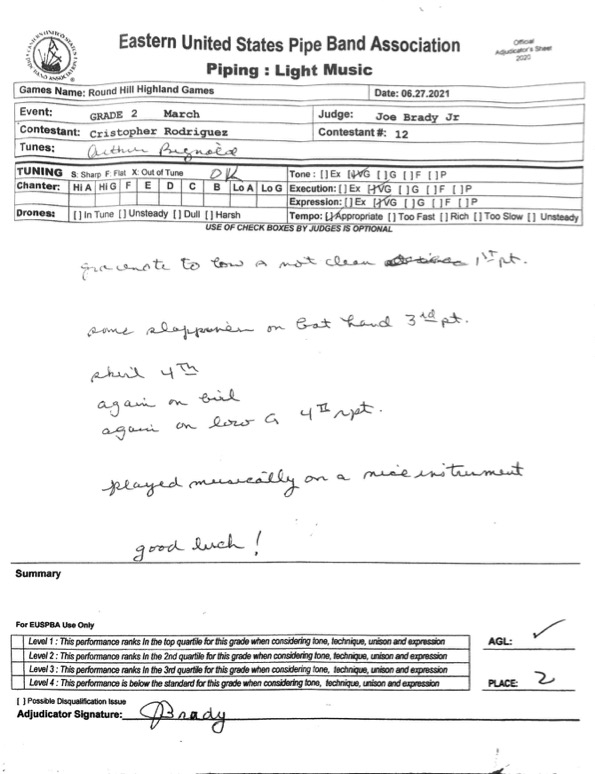 Eastern United States Pipe Band Association
Official
Adjudicator's Sheet
2020
Piping : Light Music
Games Name: Round Hill Highland Games Date: 06.27.2021
Event: GRADE 2 March Judge: Joe Brady Jr
Contestant: Cristopher Rodriguez Contestant #: 12
Tunes: Arthur Bignold
TUNING S: Sharp F: Flat X: Out of Tune OK Tone : [ ] Ex [✓] VG [ ] G [ ] F [ ] P
Chanter: Hi A Hi G F E D C B Lo A Lo G Execution: [ ] Ex [✓] VG [ ] G [ ] F [ ] P
Expression: [ ] Ex [✓] VG [ ] G [ ] F [ ] P
Drones: [ ] In Tune [ ] Unsteady [ ] Dull [ ] Harsh Tempo: [✓] Appropriate [ ] Too Fast [ ] Rich [ ] Too Slow [ ] Unsteady
USE OF CHECK BOXES BY JUDGES IS OPTIONAL
gracenote to low a not clean 1ST pt.
some on bot hand 3rd pt.
skirl 4Th
again on birl
again on low G 4Th rpt.
played musically on a nice instrument
good luck!
Summary
For EUSPBA Use Only
Level 1 : This performance ranks in the top quartile for this grade when considering tone, technique, unison and expression
Level 2 : This performance ranks in the 2nd quartile for this grade when considering tone, technique, unison and expression
Level 3 : This performance ranks in the 3rd quartile for this grade when considering tone, technique, unison and expression
Level 4 : This performance is below the standard for this grade when considering tone, technique, unison and expression
AGL: ✓
PLACE: 2
[ ] Possible Disqualification Issue
Adjudicator Signature: JBrady